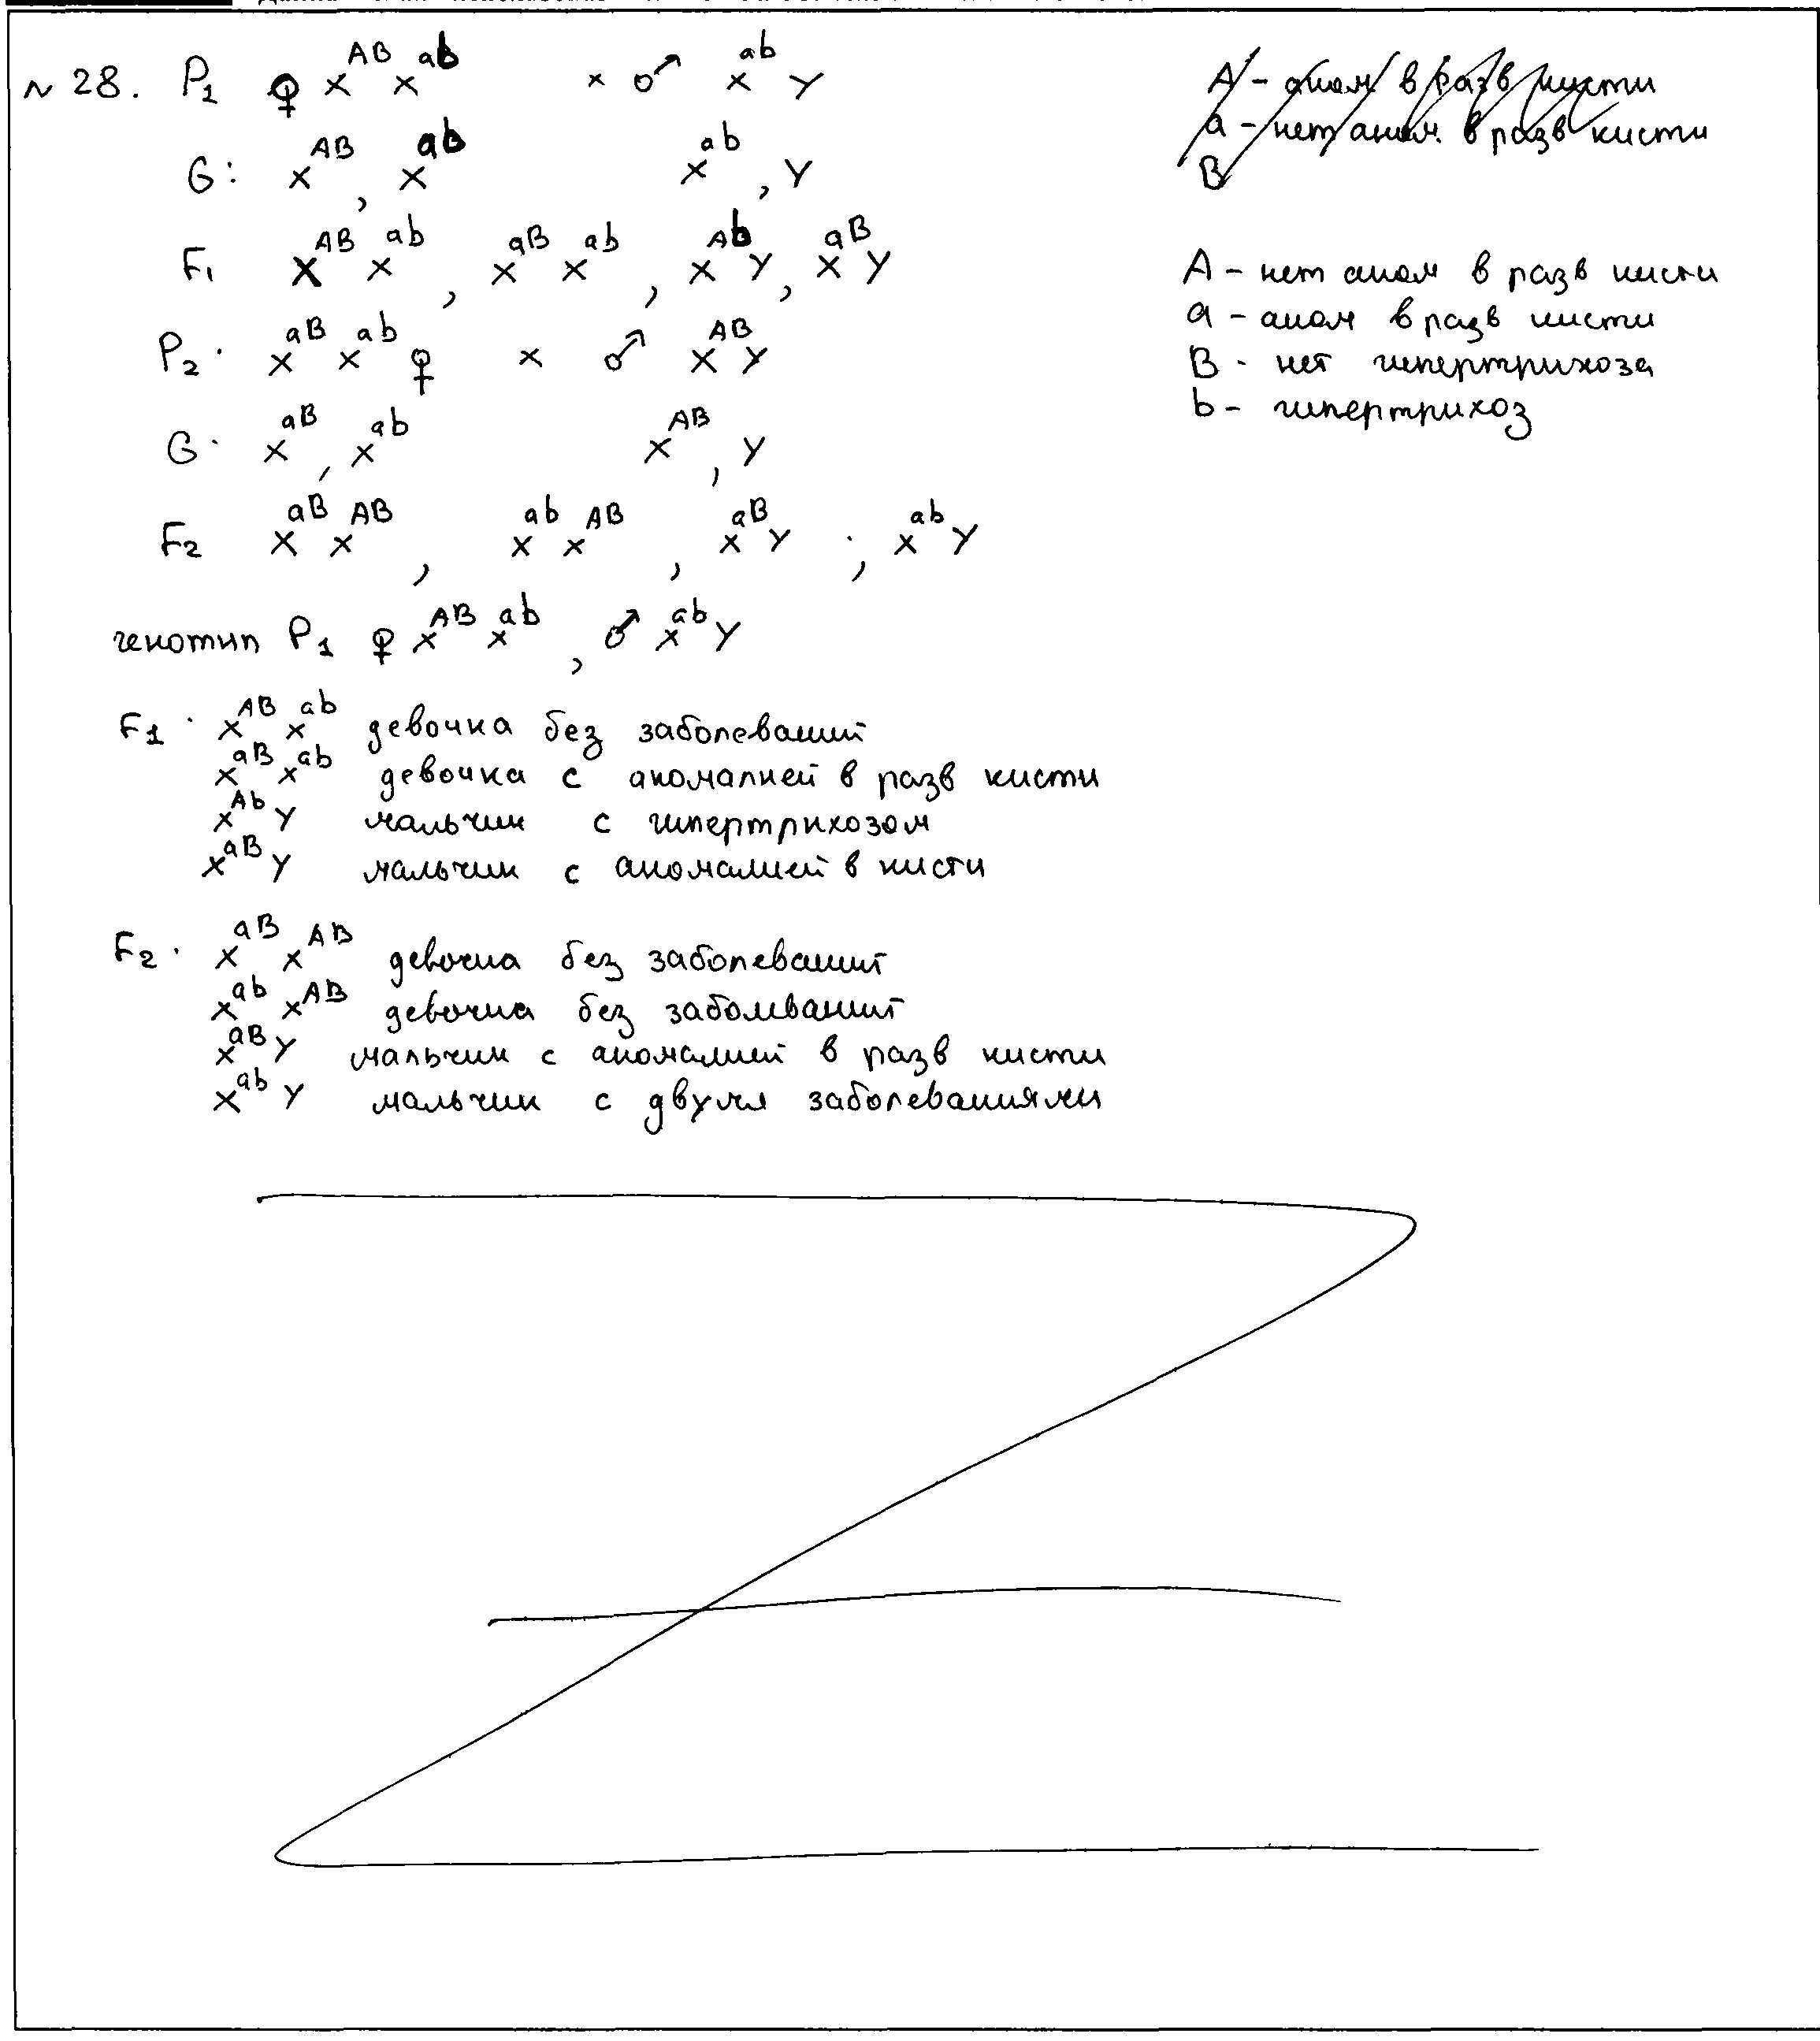 № 28. P₁ ♀ X^AB X^ab × ♂ X^ab Y
G: X^AB, X^ab X^ab, Y
F₁ X^AB X^ab, X^aB X^ab, X^Ab Y, X^aB Y
P₂. X^aB X^ab ♀ × ♂ X^AB Y
G. X^aB, X^ab X^AB, Y
F₂ X^aB X^AB, X^ab X^AB, X^aB Y, X^ab Y
генотип P₁ ♀ X^AB X^ab, ♂ X^ab Y
F₁. X^AB X^ab девочка без заболеваний
X^aB X^ab девочка с аномалией в разв кисти
X^Ab Y мальчик с гипертрихозом
X^aB Y мальчик с аномалией в кисти
F₂. X^aB X^AB девочка без заболеваний
X^ab X^AB девочка без заболеваний
X^aB Y мальчик с аномалией в разв кисти
X^ab Y мальчик с двумя заболеваниями
A - аном в разв кисти
a - нет аном. в разв кисти
B
A - нет аном в разв кисти
a - аном в разв кисти
B - нет гипертрихоза
b - гипертрихоз